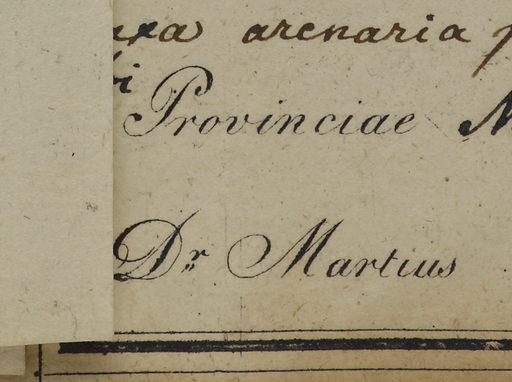 arenaria
Provinciae
Dr Martius